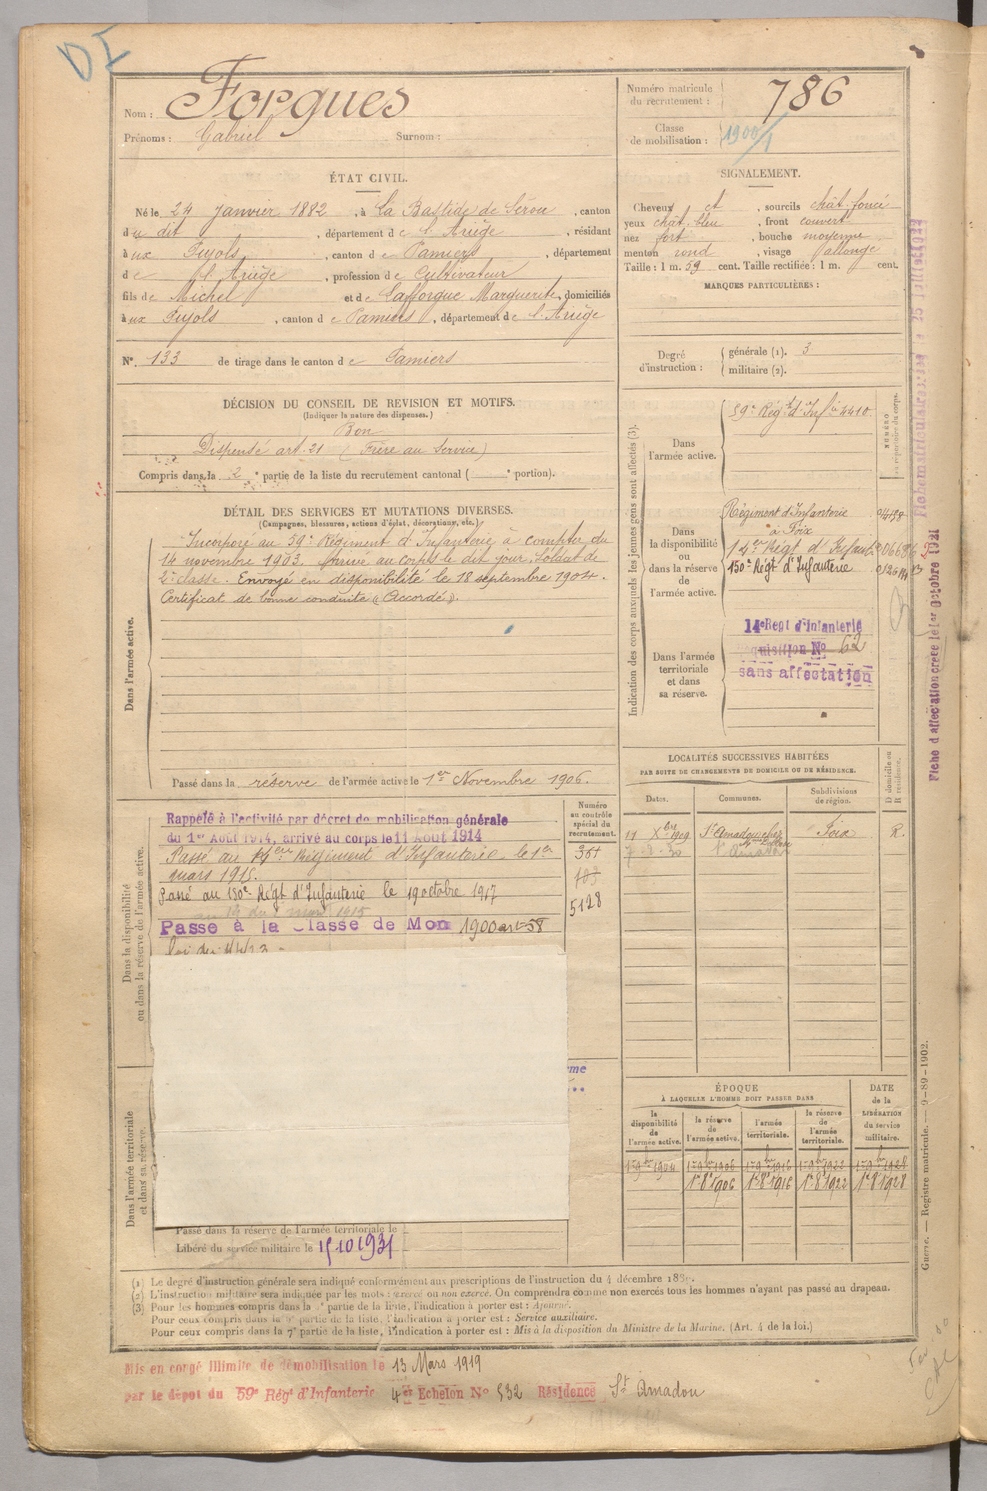 DI
Nom : Forgues
Prénoms : Gabriel Surnom :
Numéro matricule du recrutement : 786
Classe de mobilisation : 1900/1
ÉTAT CIVIL.
Né le 24 janvier 1882, à La Bastide de Sérou, canton
du dit, département de l'Ariège, résidant
à ux Pujols, canton de Pamiers, département
de l'Ariège, profession de Cultivateur
fils de Michel et de Lafforgue Marguerite, domiciliés
à ux Pujols, canton de Pamiers, département de l'Ariège
N° 133 de tirage dans le canton de Pamiers
SIGNALEMENT.
Cheveux et, sourcils chât. foncé
yeux chât. bleu, front couvert
nez fort, bouche moyenne
menton rond, visage allongé
Taille : 1 m. 59 cent. Taille rectifiée : 1 m. cent.
MARQUES PARTICULIÈRES :
Degré d'instruction : générale (1). 3
militaire (2).
DÉCISION DU CONSEIL DE REVISION ET MOTIFS.
(Indiquer la nature des dispenses.)
Bon
Dispensé art. 21 (Frère au Service)
Compris dans la 2e partie de la liste du recrutement cantonal ( e portion).
DÉTAIL DES SERVICES ET MUTATIONS DIVERSES.
(Campagnes, blessures, actions d'éclat, décorations, etc.)
Dans l'armée active.
Incorporé au 59e Régiment d'Infanterie à compter du
14 novembre 1903. Arrivé au corps le dit jour. Soldat de
2e classe. Envoyé en disponibilité le 18 septembre 1904.
Certificat de bonne conduite "Accordé".
Passé dans la réserve de l'armée active le 1er Novembre 1906.
Dans la disponibilité ou dans la réserve de l'armée active.
Rappelé à l'activité par décret de mobilisation générale
du 1er Août 1914, arrivé au corps le 11 Août 1914
Passé au 14eme Régiment d'Infanterie le 1er
mars 1915.
Passé au 150e Régt d'Infanterie le 19 octobre 1917
Passé à la Classe de Mon 1900 art 58
Numéro au contrôle spécial du recrutement.
5128
Dans l'armée territoriale et dans sa réserve.
Passé dans la réserve de l'armée territoriale le
Libéré du service militaire le 15/10 1931
Indication des corps auxquels les jeunes gens sont affectés (3).
NUMÉRO au répertoire du corps.
Dans l'armée active.
59e Régt d'Infie 4410
Dans la disponibilité ou dans la réserve de l'armée active.
Régiment d'Infanterie
à Foix
14e Régt d'Infant
150e Régt d'Infanterie
Dans l'armée territoriale et dans sa réserve.
14e Régt d'Infanterie
62
sans affectation
Fiche matriculaire
Fiche d'affectation créée le 1er Octobre 1921
LOCALITÉS SUCCESSIVES HABITÉES
PAR SUITE DE CHANGEMENTS DE DOMICILE OU DE RÉSIDENCE.
Dates. Communes. Subdivisions de région. D domicile ou R résidence.
17 Xbre 1909 St Amadou Foix R.
ÉPOQUE
À LAQUELLE L'HOMME DOIT PASSER DANS
la disponibilité de l'armée active. la réserve de l'armée active. l'armée territoriale. la réserve de l'armée territoriale. DATE de la LIBÉRATION du service militaire.
1er 9bre 1904 1er 9bre 1906 1er 9bre 1916 1er 9bre 1922 1er 9bre 1928
1er 8e 1906 1er 8e 1916 1er 8e 1922 1er 8e 1928
Guerre. — Registre matricule. — 9-89-1902.
(1) Le degré d'instruction générale sera indiqué conformément aux prescriptions de l'instruction du 4 décembre 1889.
(2) L'instruction militaire sera indiquée par les mots : exercé ou non exercé. On comprendra comme non exercés tous les hommes n'ayant pas passé au drapeau.
(3) Pour les hommes compris dans la e partie de la liste, l'indication à porter est : Ajourné.
Pour ceux compris dans la e partie de la liste, l'indication à porter est : Service auxiliaire.
Pour ceux compris dans la 7e partie de la liste, l'indication à porter est : Mis à la disposition du Ministre de la Marine. (Art. 4 de la loi.)
Mis en congé illimité de démobilisation le 13 Mars 1919
par le dépôt du 59e Régt d'Infanterie 4er Echelon N° 532 Résidence St Amadou